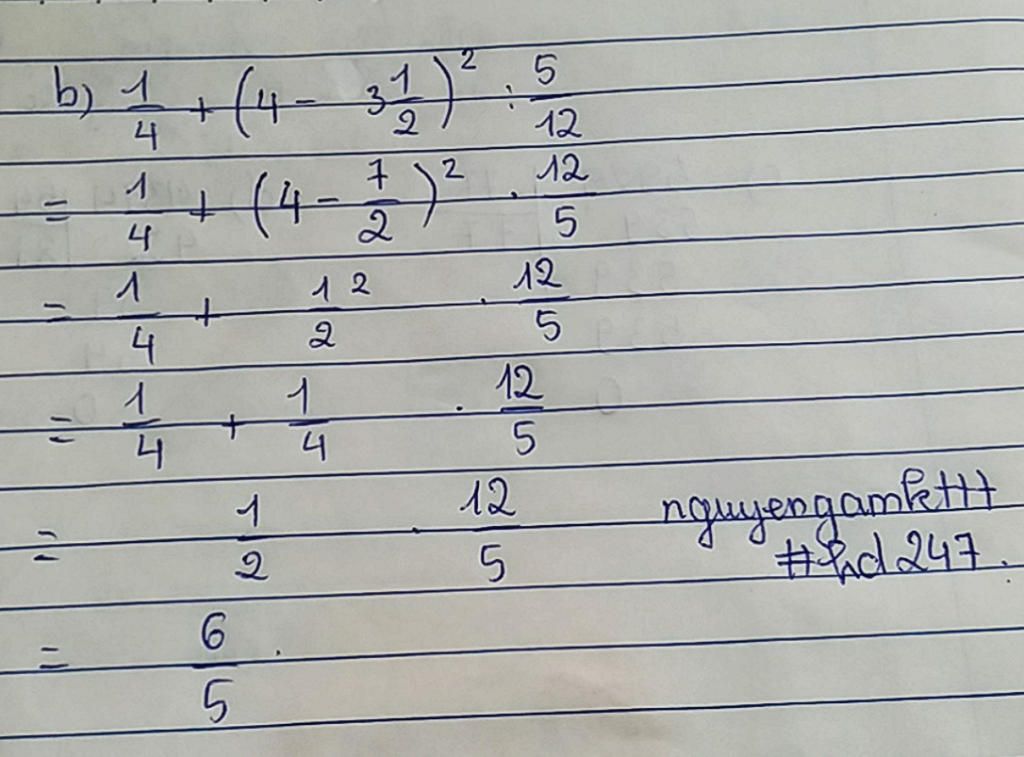 b) 1/4 + (4 - 3 1/2)² : 5/12
= 1/4 + (4 - 7/2)² . 12/5
= 1/4 + 1²/2 . 12/5
= 1/4 + 1/4 . 12/5
= 1/2 . 12/5
nguyengamk+++
#hd247.
= 6/5.